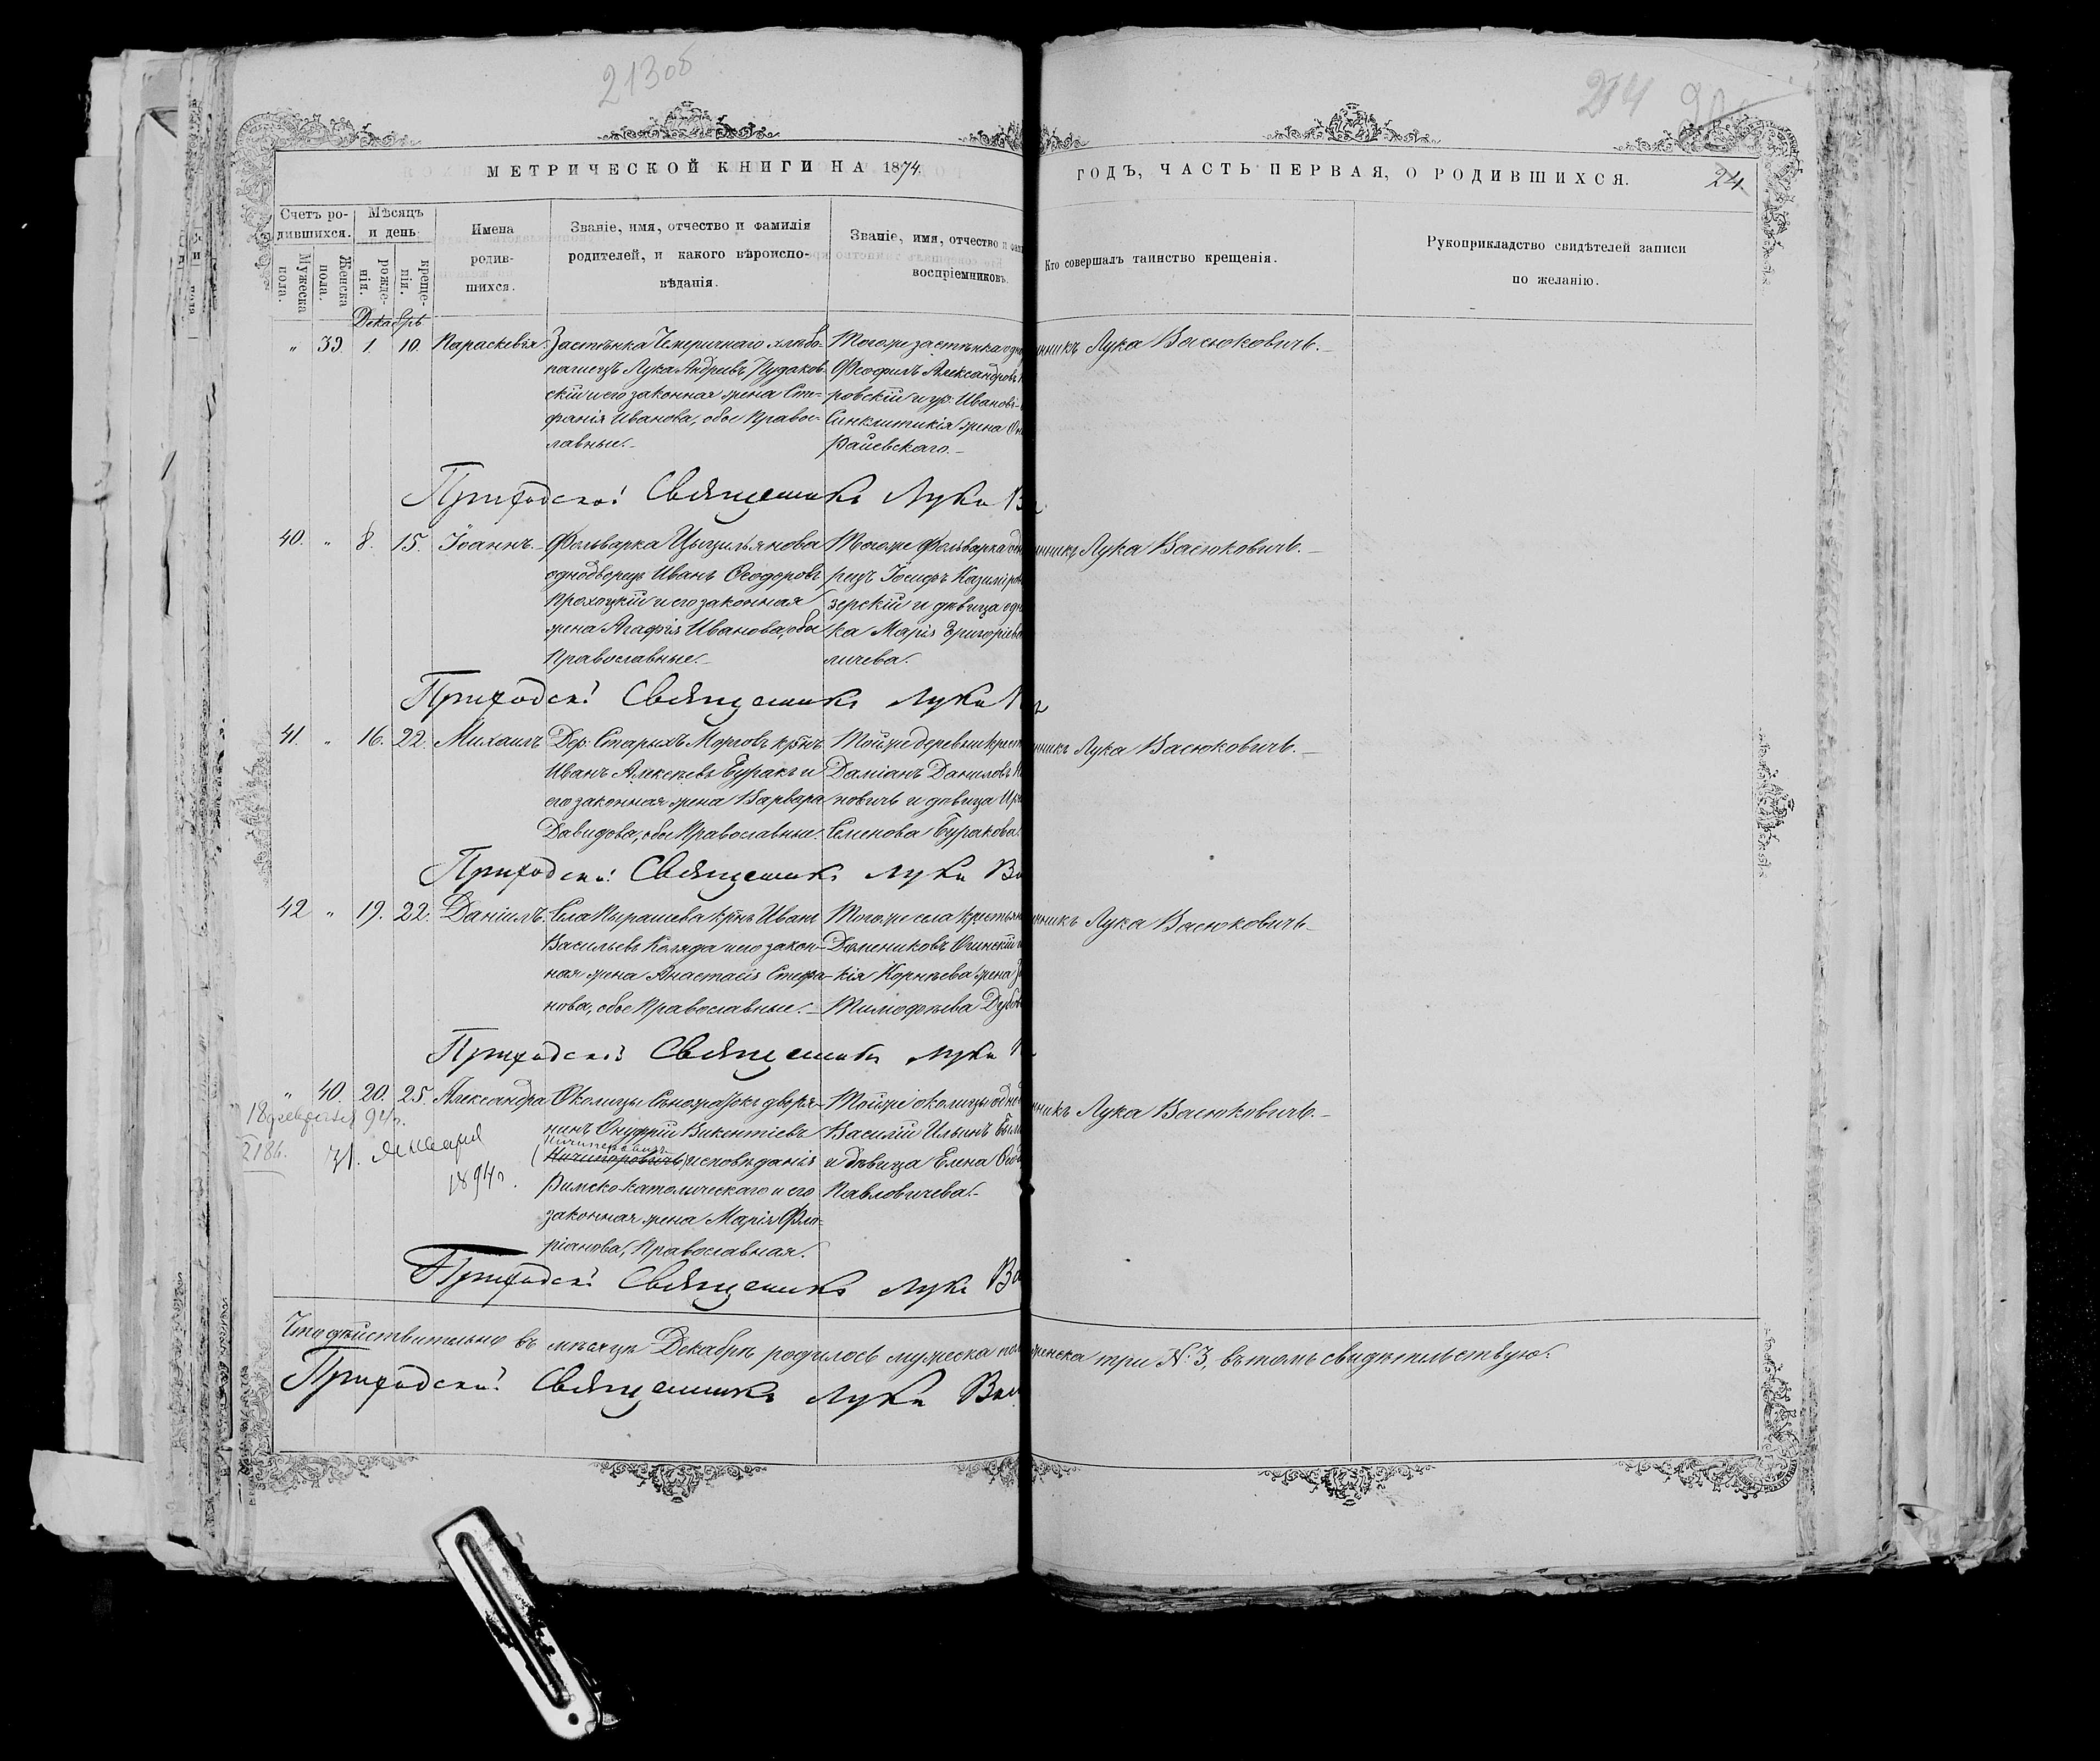 213об
214
МЕТРИЧЕСКОЙ КНИГИ НА 1874
ГОДЪ, ЧАСТЬ ПЕРВАЯ, О РОДИВШИХСЯ.
24
Счетъ ро-
дившихся.
Мужеска пола.
Женска пола.
Мѣсяцъ
и день
рожде-
нія.
креще-
нія.
Имена
родив-
шихся.
Званіе, имя, отчество и фамилія
родителей, и какого вѣроиспо-
вѣданія.
Званіе, имя, отчество и фами
воспріемниковъ.
Кто совершалъ таинство крещенія.
Рукоприкладство свидѣтелей записи
по желанію.
Декабрь
" 39. 1. 10. Параскевія
Застѣнка Чемеричнаго хлѣбо-
пашецъ Лука Андреевъ
скій и его законная жена Сте-
фанія Иванова, обое Правос-
лавные.
Тогоже застѣнка
Феофилъ Александровъ
ровскій и
Синклитикія жена
Райевскаго.
нникъ Лука Васюковичъ.
Приходскій Священникъ Лука Ва
40. " 8. 15. Іоаннъ.
Фольварка
однодворецъ Иванъ Ѳеодоровъ
Прохоцкій и его законная
жена Агафія Иванова, обое
Православные.
Тогоже Фольварка одно
рецъ Іосифъ Казиміров
зерскій и дѣвица одно
ка Марія Григоріева
личева.
нникъ Лука Васюковичъ.
Приходскій Священникъ Лука
41. " 16. 22. Михаилъ
Дер: Старыхъ Морговъ крнъ
Иванъ Алексѣевъ Буракъ и
его законная жена Варвара
Давидова, обое Православные.
Тойже деревни крест
Даміанъ Даниловъ
новичъ и дѣвица
Семенова Буракова.
нникъ Лука Васюковичъ.
Приходскій Священникъ Лука Ва
42 " 19. 22. Даніилъ.
Села Кырашева крнъ Иванъ
Васильевъ Коляда и его закон-
ная жена Анастасія Стефа-
нова, обое Православные.
Тогоже села крестьян
Домениковъ Огинскій
кія Корнѣева жена
Тимофѣева Дубов
нникъ Лука Васюковичъ
Приходскій Священникъ Лука
" 40. 20. 25. Александра
Околицы дворя-
нинъ Онуфрій Викентіевъ
(Ничипоровичъ) исповѣданія
Римско-католическаго и его
законная жена Марія Фло-
ріанова, Православная.
Тойже околицы одно
Василій Ильинъ
и дѣвица Елена Ѳеод
Павловичева.
нникъ Лука Васюковичъ.
18 февраля 94г.
2186.
31. Января
1894г.
Приходскій Священникъ Лука Ва
Что дѣйствительно въ мѣсяцѣ Декабрѣ родилось мужеска пол
женска три № 3, въ томъ свидѣтельствую:
Приходскій Священникъ Лука Вас